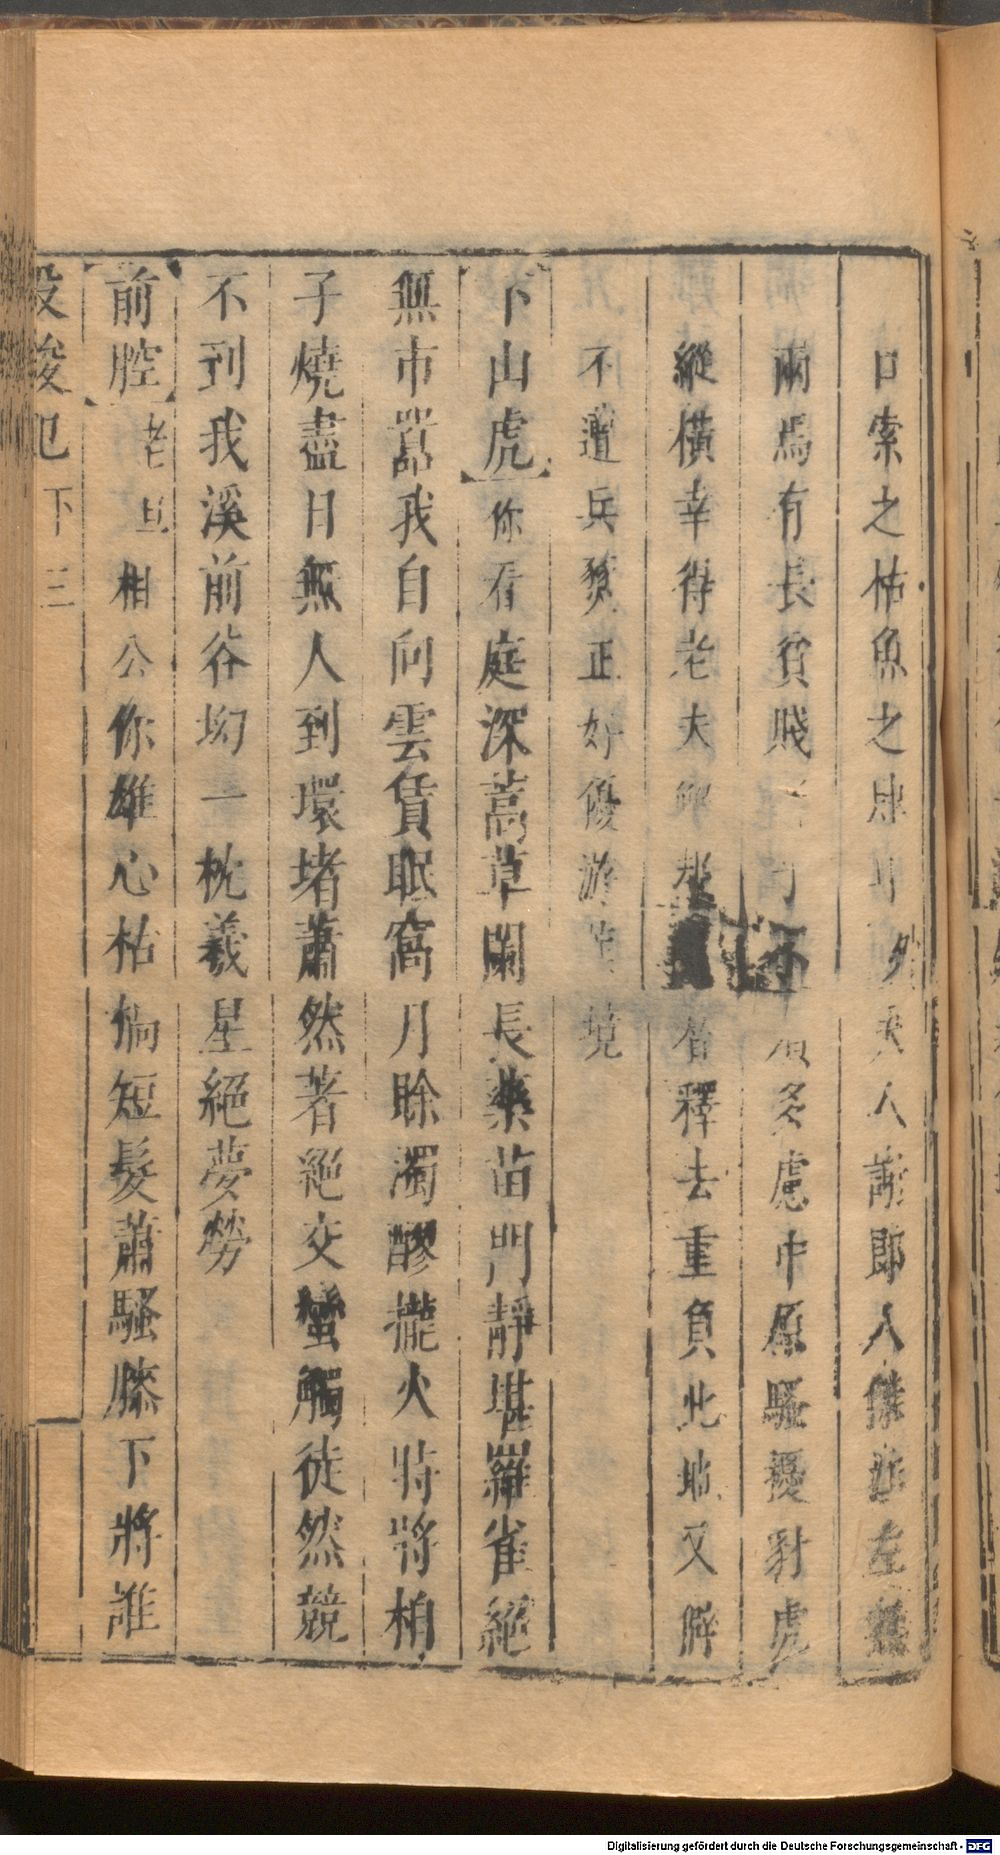 口索之枯魚之肆 外 夫人謝郎人傑
兩馬有長貧賤 不 須多慮中原騷擾豺虎
縱橫幸得老夫 釋去重負此地又僻
不遭兵燹正好優游 境
下山虎 你看庭深蒿草闌長藥苗門靜堪羅雀絕
無市囂我自向雲賃眠窩月賒濁醪攏火特將柏
子燒盡日無人到環堵蕭然著絕交蠻觸徒然競
不到我溪前谷坳一枕羲星絕夢勞
前腔 老旦 相公你雄心枯倘短髮蕭騷膝下將誰
投梭記 下 三
Digitalisierung gefördert durch die Deutsche Forschungsgemeinschaft - DFG